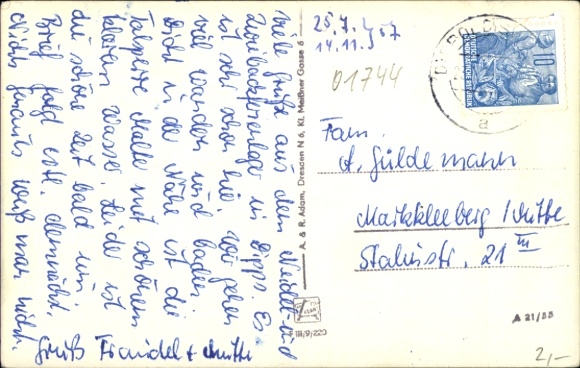 Viele Grüße aus dem Weidel- und
in Dipps. Es
ist sehr schön hier. Wir gehen
viel wandern und baden.
Dicht in der Nähe ist die
Talsperre Malter mit schönem
klaren Wasser. Leider ist
die schöne Zeit bald um.
Brief folgt evtl. demnächst.
Nichts genaues weiß man nicht.
Gruß + Mutti
A. & R. Adam, Dresden N 6, Kl. Meißner Gasse 6
III/9/220
25.7.57
14.11.
01744
DEUTSCHE
DEMOKRATISCHE REPUBLIK
10
a
Fam.
A. Güldemann
Markkleeberg / Mitte
Stalinstr. 21 III
A 21/55
2,-